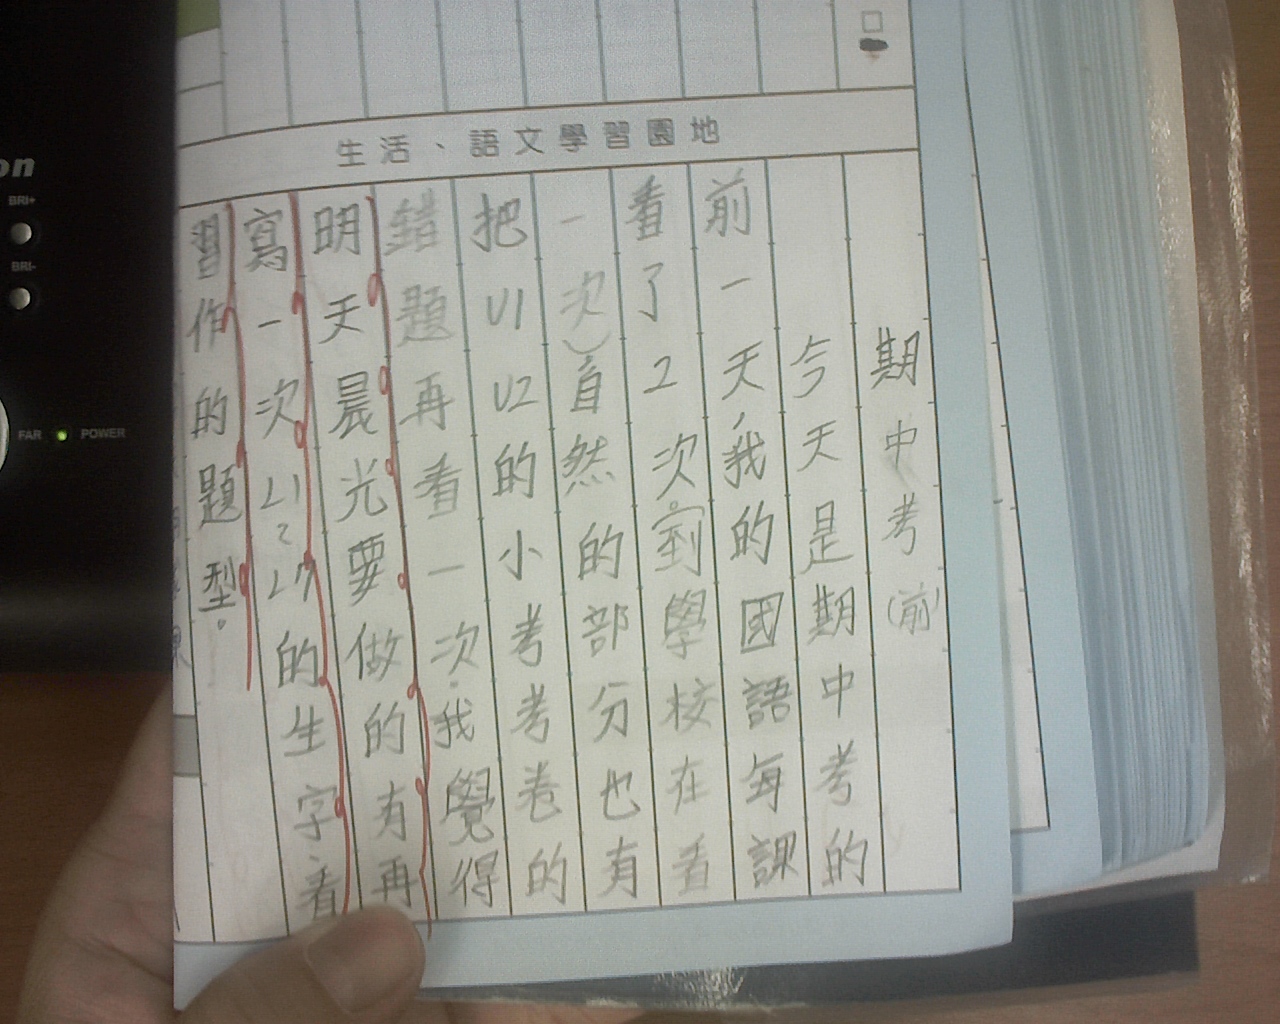 生活、語文學習園地
期中考(前)
今天是期中考的
前一天,我的國語每課
看了2次。到學校在看
一次)自然的部分也有
把U1U2的小考考卷的
錯題再看一次。我覺得
明天晨光要做的有再
寫一次L1~L7的生字、看
習作的題型。
on
BRI+
BRI-
FAR
POWER